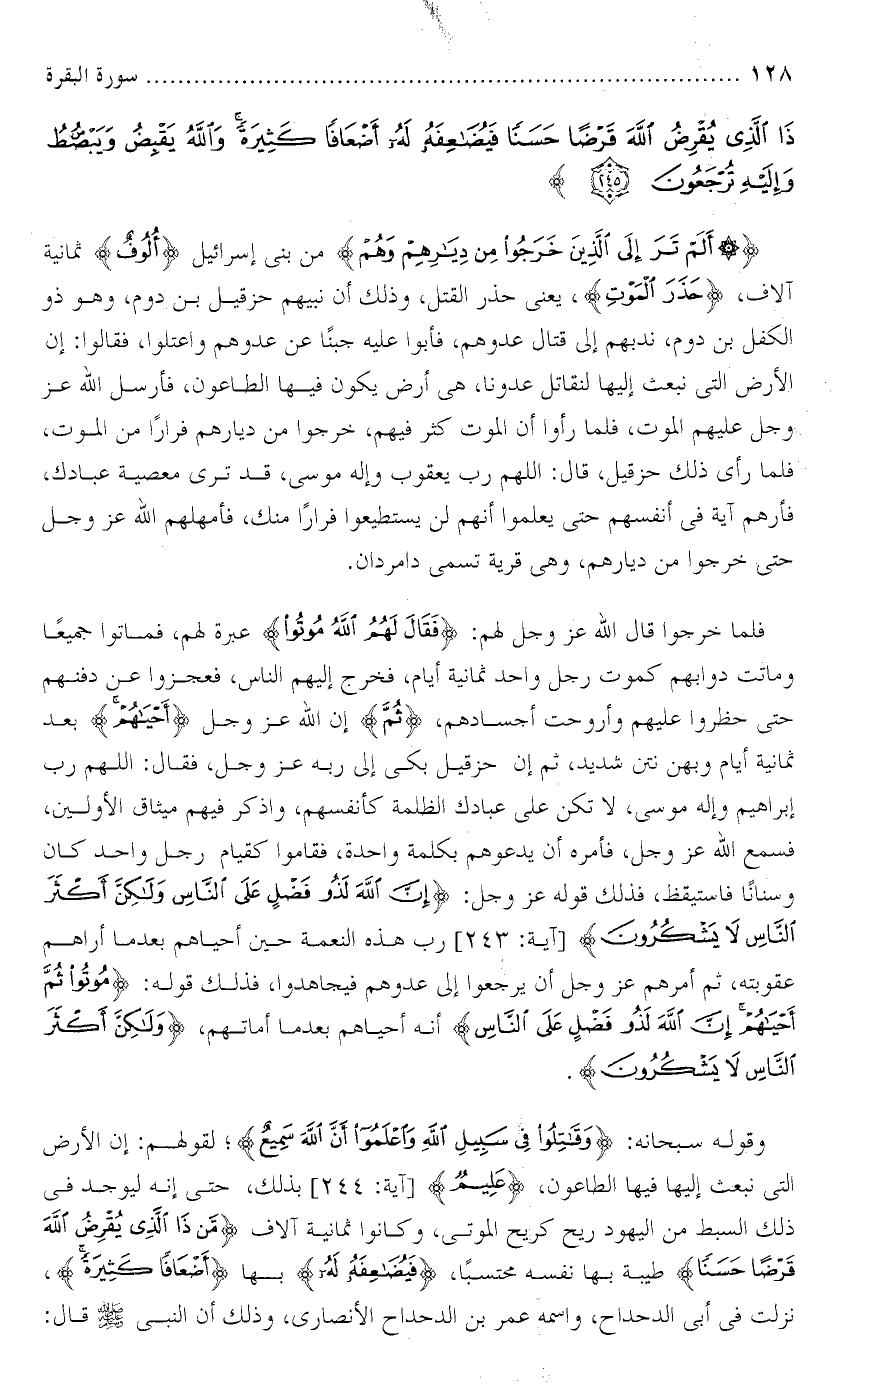 ١٢٨ ........................................................................ سورة البقرة
ذَا ٱلَّذِى يُقْرِضُ ٱللَّهَ قَرْضًا حَسَنًا فَيُضَٰعِفَهُۥ لَهُۥٓ أَضْعَافًا كَثِيرَةً ۚ وَٱللَّهُ يَقْبِضُ وَيَبْصُۜطُ
وَإِلَيْهِ تُرْجَعُونَ (٢٤٥) ﴾
﴿۞ أَلَمْ تَرَ إِلَى ٱلَّذِينَ خَرَجُوا۟ مِن دِيَٰرِهِمْ وَهُمْ﴾ من بنى إسرائيل ﴿أُلُوفٌ﴾ ثمانية
آلاف، ﴿حَذَرَ ٱلْمَوْتِ﴾، يعنى حذر القتل، وذلك أن نبيهم حزقيل بن دوم، وهو ذو
الكفل بن دوم، ندبهم إلى قتال عدوهم، فأبوا عليه جبنًا عن عدوهم واعتلوا، فقالوا: إن
الأرض التى نبعث إليها لنقاتل عدونا، هى أرض يكون فيها الطاعون، فأرسل الله عز
وجل عليهم الموت، فلما رأوا أن الموت كثر فيهم، خرجوا من ديارهم فرارًا من الموت،
فلما رأى ذلك حزقيل، قال: اللهم رب يعقوب وإله موسى، قد ترى معصية عبادك،
فأرهم آية فى أنفسهم حتى يعلموا أنهم لن يستطيعوا فرارًا منك، فأمهلهم الله عز وجل
حتى خرجوا من ديارهم، وهى قرية تسمى دامردان.
فلما خرجوا قال الله عز وجل لهم: ﴿فَقَالَ لَهُمُ ٱللَّهُ مُوتُوا۟﴾ عبرة لهم، فماتوا جميعًا
وماتت دوابهم كموت رجل واحد ثمانية أيام، فخرج إليهم الناس، فعجزوا عن دفنهم
حتى حظروا عليهم وأروحت أجسادهم، ﴿ثُمَّ﴾ إن الله عز وجل ﴿أَحْيَٰهُمْ ۚ﴾ بعد
ثمانية أيام وبهن نتن شديد، ثم إن حزقيل بكى إلى ربه عز وجل، فقال: اللهم رب
إبراهيم وإله موسى، لا تكن على عبادك الظلمة كأنفسهم، واذكر فيهم ميثاق الأولين،
فسمع الله عز وجل، فأمره أن يدعوهم بكلمة واحدة، فقاموا كقيام رجل واحد كان
وسنانًا فاستيقظ، فذلك قوله عز وجل: ﴿إِنَّ ٱللَّهَ لَذُو فَضْلٍ عَلَى ٱلنَّاسِ وَلَٰكِنَّ أَكْثَرَ
ٱلنَّاسِ لَا يَشْكُرُونَ﴾ [آية: ٢٤٣] رب هذه النعمة حين أحياهم بعدما أراهم
عقوبته، ثم أمرهم عز وجل أن يرجعوا إلى عدوهم فيجاهدوا، فذلك قوله: ﴿مُوتُوا۟ ثُمَّ
أَحْيَٰهُمْ ۚ إِنَّ ٱللَّهَ لَذُو فَضْلٍ عَلَى ٱلنَّاسِ﴾ أنه أحياهم بعدما أماتهم، ﴿وَلَٰكِنَّ أَكْثَرَ
ٱلنَّاسِ لَا يَشْكُرُونَ﴾.
وقوله سبحانه: ﴿وَقَٰتِلُوا۟ فِى سَبِيلِ ٱللَّهِ وَٱعْلَمُوٓا۟ أَنَّ ٱللَّهَ سَمِيعٌ﴾؛ لقولهم: إن الأرض
التى نبعث إليها فيها الطاعون، ﴿عَلِيمٌ﴾ [آية: ٢٤٤] بذلك، حتى إنه ليوجد فى
ذلك السبط من اليهود ريح كريح الموتى، وكانوا ثمانية آلاف ﴿مَّن ذَا ٱلَّذِى يُقْرِضُ ٱللَّهَ
قَرْضًا حَسَنًا﴾ طيبة بها نفسه محتسبًا، ﴿فَيُضَٰعِفَهُۥ لَهُۥٓ﴾ بها ﴿أَضْعَافًا كَثِيرَةً ۚ﴾،
نزلت فى أبى الدحداح، واسمه عمر بن الدحداح الأنصارى، وذلك أن النبى ﷺ قال: